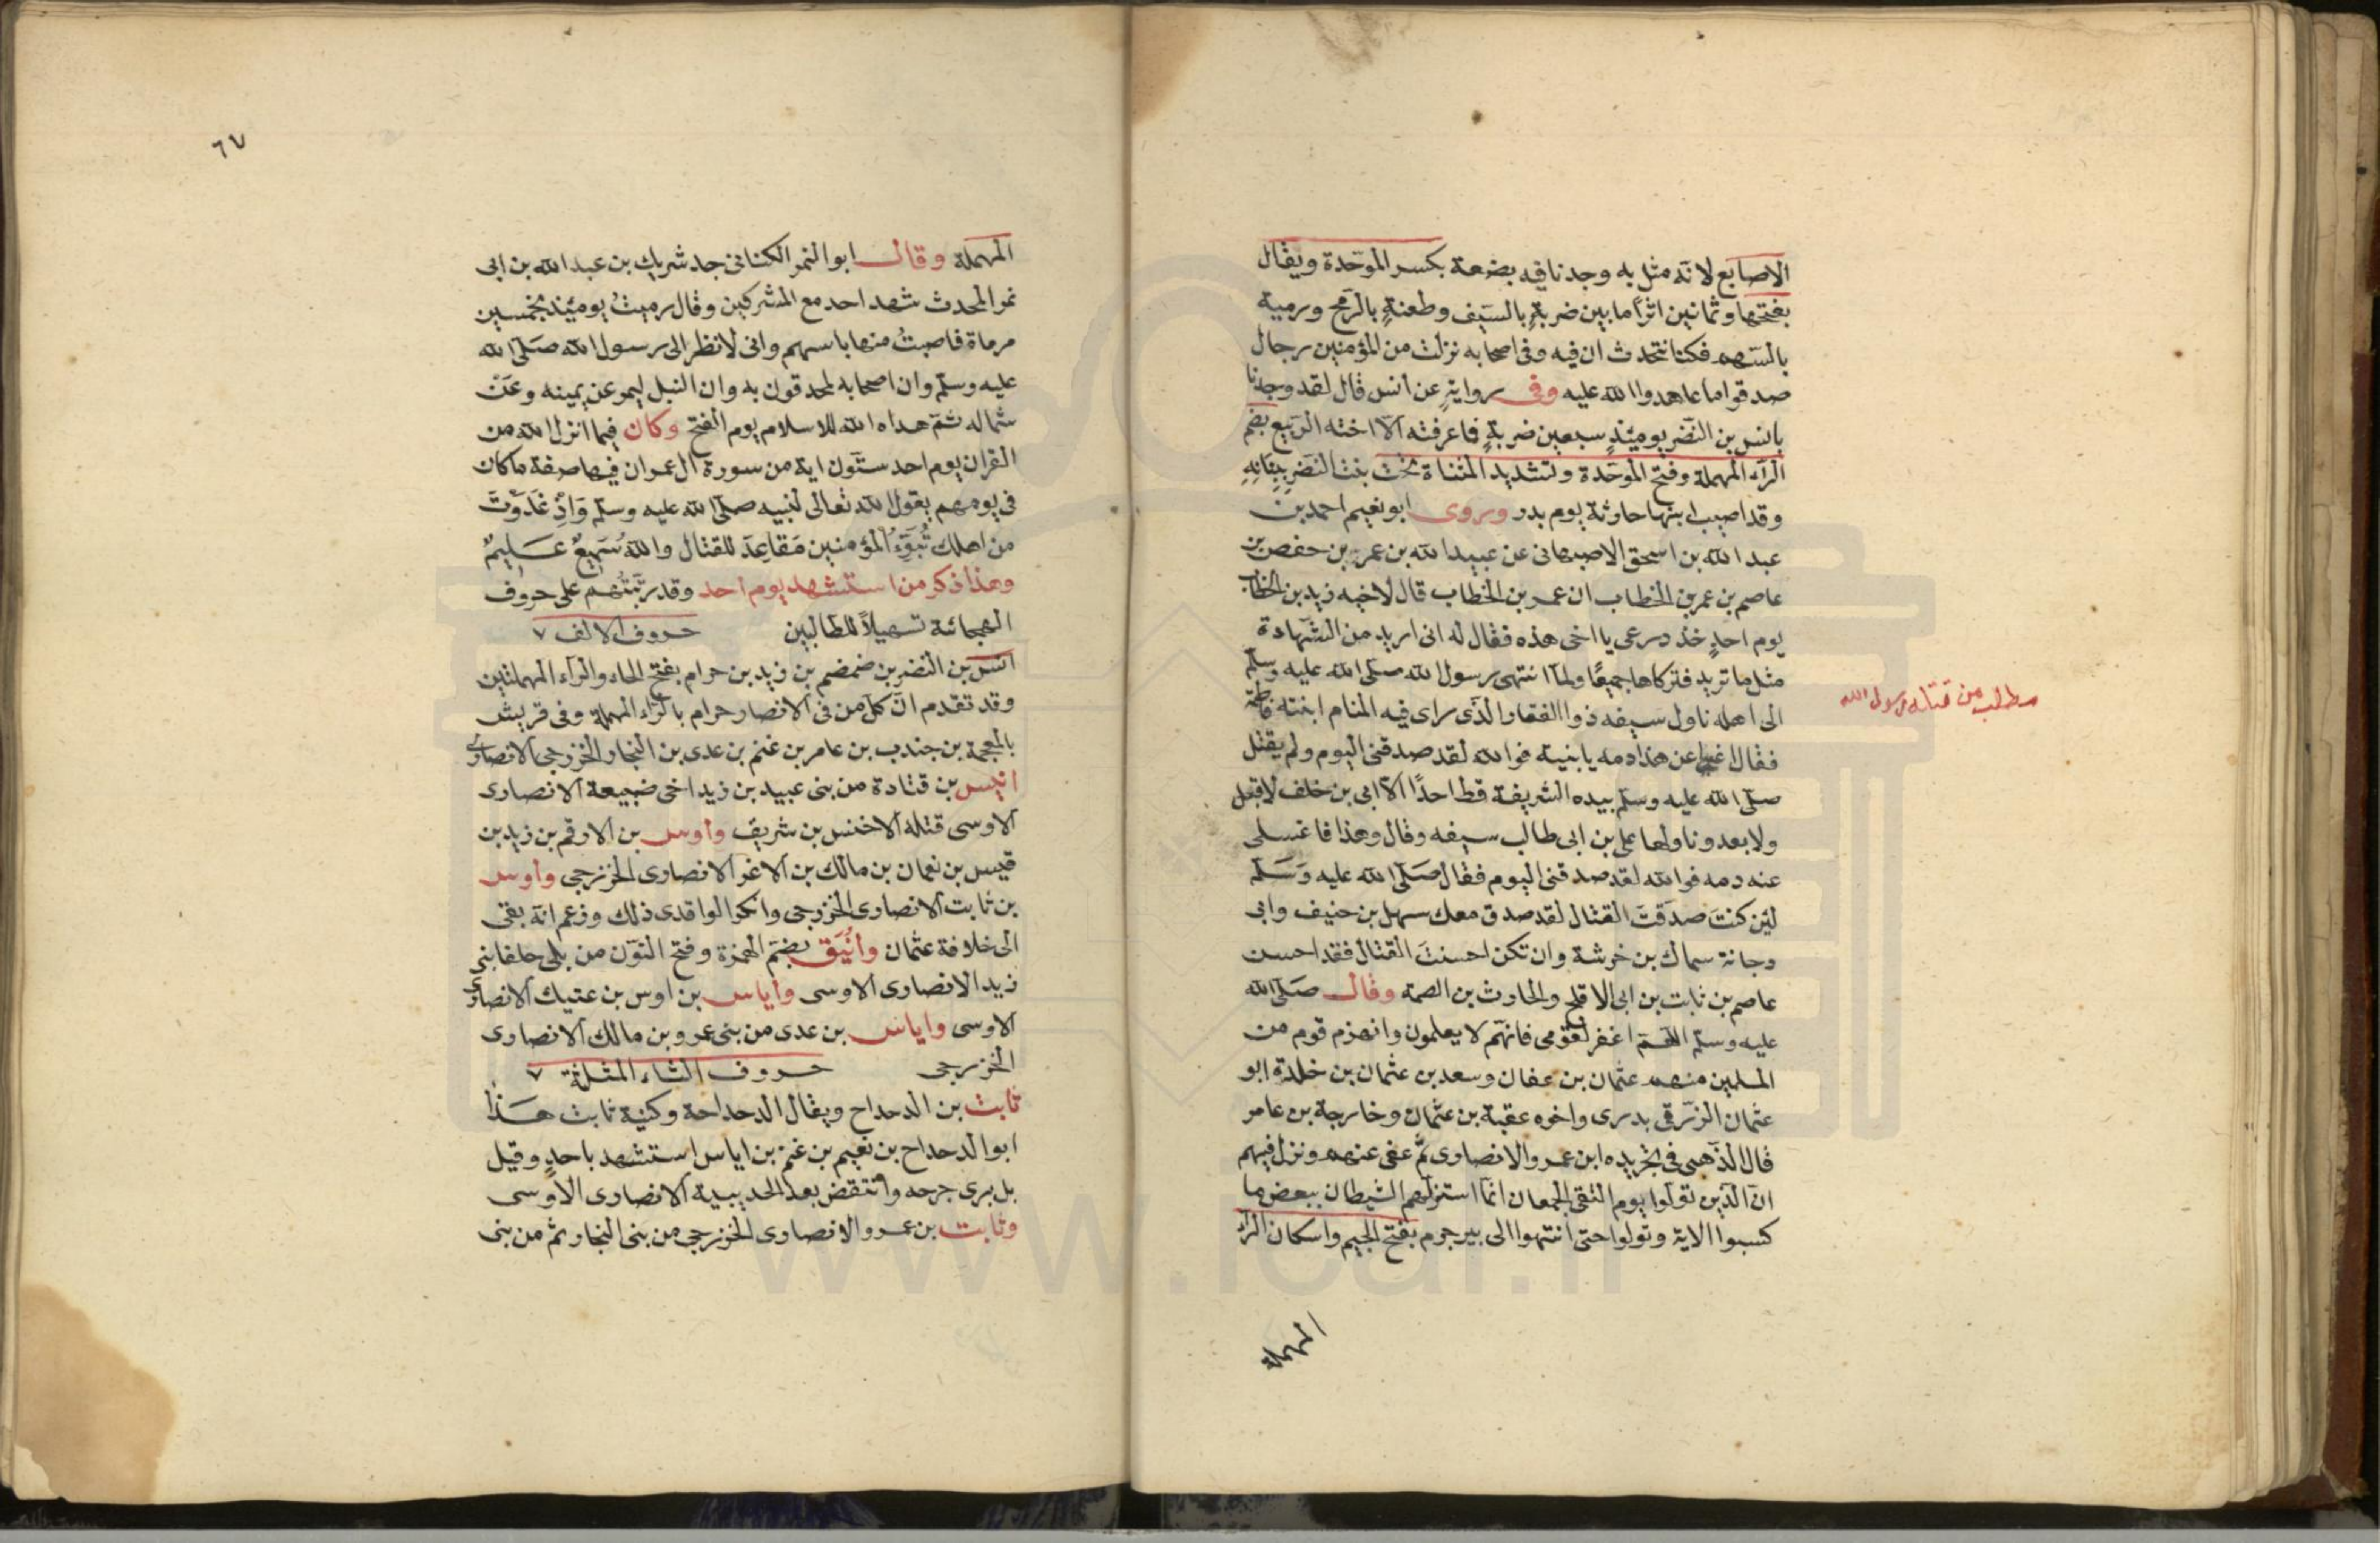 الاصابع لانه مثل به وجدنا فيه بضعة بكسر الموحّدة ويقال
بفتحها وثمانين اثرًا ما بين ضربةٍ بالسيف وطعنةٍ بالرمح ورمية
بالسهم فكنا نتحدث ان فيه وفى اصحابه نزلت من المؤمنين رجال
صدقوا ما عاهدوا الله عليه وفى روايةٍ عن انس قال لقد وجدنا
بانس بن النضر يومئذٍ سبعين ضربةٍ فما عرفته الّا اخته الربيع بضم
الرّاء المهملة وفتح الموحّدة وتشديد المثناة تحت بنت النضر ببنانه
وقد اصيب ابنها حارثة يوم بدر وروى ابو نعيم احمد بن
عبد الله بن اسحق الاصبهانى عن عبيد الله بن عمر بن حفص بن
عاصم بن عمر بن الخطاب ان عمر بن الخطاب قال لاخيه زيد بن الخطاب
يوم احدٍ خذ درعى يا اخى هذه فقال له انى اريد من الشهادة
مثل ما تريد فتركاها جميعًا ولما انتهى رسول الله صلى الله عليه وسلم
الى اهله ناول سيفه ذو الفقار الّذى راى فيه المنام ابنته فاطمة
مطلب من قتله رسول الله
فقال اغسلى عن هذا دمه يا بنية فوالله لقد صدقنى اليوم ولم يقتل
صلّى الله عليه وسلّم بيده الشريفة قط احدًا الّا ابى بن خلف لا قبل
ولا بعد وناولها على بن ابى طالب سيفه وقال وهذا فاغسلى
عنه دمه فوالله لقد صدقنى اليوم فقال صَلّى الله عليه وَسَلّم
لئن كنتَ صدَقتَ القتال لقد صدق معك سهل بن حنيف وابى
دجانة سماك بن خرشة وان تكن احسنتَ القتال فقد احسن
عاصم بن ثابت بن ابى الاقلح والحارث بن الصمة وقال صَلّى الله
عليه وسلم اللّهمّ اغفر لقومى فانهم لا يعلمون وانهزم قوم من
المسلمين منهم عثمان بن عفان وسعد بن عثمان بن خلدة ابو
عثمان الزرقى بدرى واخوه عقبة بن عثمان وخارجة بن عامر
قال الذّهبى فى تجريده ابن عمرو الانصارى ثمّ عفى عنهم ونزل فيهم
انّ الّذين تولّوا يوم التقى الجمعان انّما استزلهم الشيطان ببعض ما
كسبوا الاية وتولوا حتى انتهوا الى بير جرم بفتح الجيم واسكان الراء
المهملة
٦٧
المهملة وقال ابو النمر الكنانى جد شريك بن عبد الله بن ابى
نمر المحدث شهد احد مع المشركين وقال رميتُ يومئذ بخمسين
مرماة فاصبتُ منها باسهم وانى لانظر الى رسول الله صَلّى الله
عليه وسلّم وان اصحابه لمحدقون به وان النبل ليمر عن يمينه وعن
شماله ثم هداه الله للاسلام يوم الفتح وكان فيما انزل الله من
القران يوم احد ستّون اية من سورة ال عمران فيها صفة ما كان
فى يومهم يقول الله تعالى لنبيه صلى الله عليه وسلم وَاذِ غدَوْتَ
من اهلك تُبَوّءُ المؤمنين مَقاعِدَ للقتال واللهُ سَميعٌ عَليمٌ
وهذا ذكر من استشهد يوم احد وقد رتّبتُهُم على حروف
الهجائة تسهيلاً للطالبين حروف الالف ٧
انس بن النضر بن ضمضم بن زيد بن حرام بفتح الحاء والرّاء المهملتين
وقد تقدم انّ كل من فى الانصار حرام بالرّاء المهملة وفى قريش
بالمعجمة بن جندب بن عامر بن غنم بن عدى بن النجار الخزرجى الانصارى
انيس بن قتادة من بنى عبيد بن زيد اخى ضبيعة الانصارى
الاوسى قتله الاخنس بن شريق واوس بن الارقم بن زيد بن
قيس بن نعمان بن مالك بن الاغر الانصارى الخزرجى واوس
بن ثابت الانصارى الخزرجى وانكر الواقدى ذلك وزعم انه بقى
الى خلافة عثمان وأنُيَق بضم الهمزة وفتح النون من بلى حلفا بنى
زيد الانصارى الاوسى واياس بن اوس بن عتيك الانصارى
الاوسى واياس بن عدى من بنى عمرو بن مالك الانصارى
الخزرجى حروف الثاء المثلثة ٧
ثابت بن الدحداح ويقال الدحداحة وكنية ثابت هذا
ابو الدحداح بن نعيم بن غنم بن اياس استشهد باحدٍ وقيل
بل برى جرحه وانتقض بعد الحديبية الانصارى الاوسى
وثابت بن عمرو الانصارى الخزرجى من بنى النجار ثم من بنى
www.ical.ir